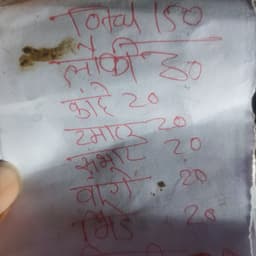 Total 150
लौकी 50
कांदे 20
टमाटर 20
सांभार 20
वांगे 20
भिंडे 20